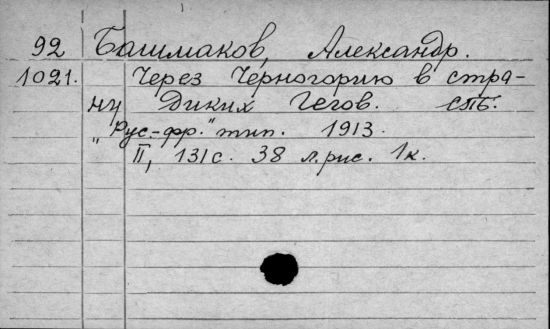 92 Башмаков, Александр.
1021. Через Черногорию в стра-
ну Диких Гегов. СПБ.
"Рус.-фр." тип. 1913.
II, 131с. 38 л.рис. 1к.